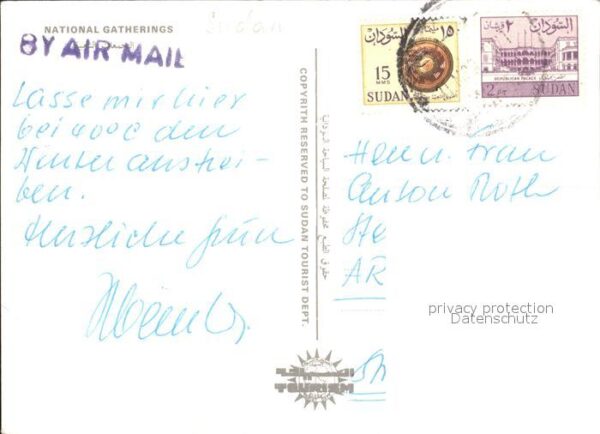 NATIONAL GATHERINGS
Sudan
BY AIR MAIL
Lasse mir hier
bei 40°C den
Winter austrei-
ben.
Herzliche Grüße
COPYRITH RESERVED TO SUDAN TOURIST DEPT.
حقوق الطبع محفوظة لمصلحة السياحة السودانية
السودان ١٥
مليما
15
MMS
SUDAN
السودان ٢ قرشان
REPUBLICAN PALACE
2 PT. SUDAN
Herrn u. Frau
Anton Roth
Ste
AR
privacy protection
Datenschutz
السياحة
TOURISM